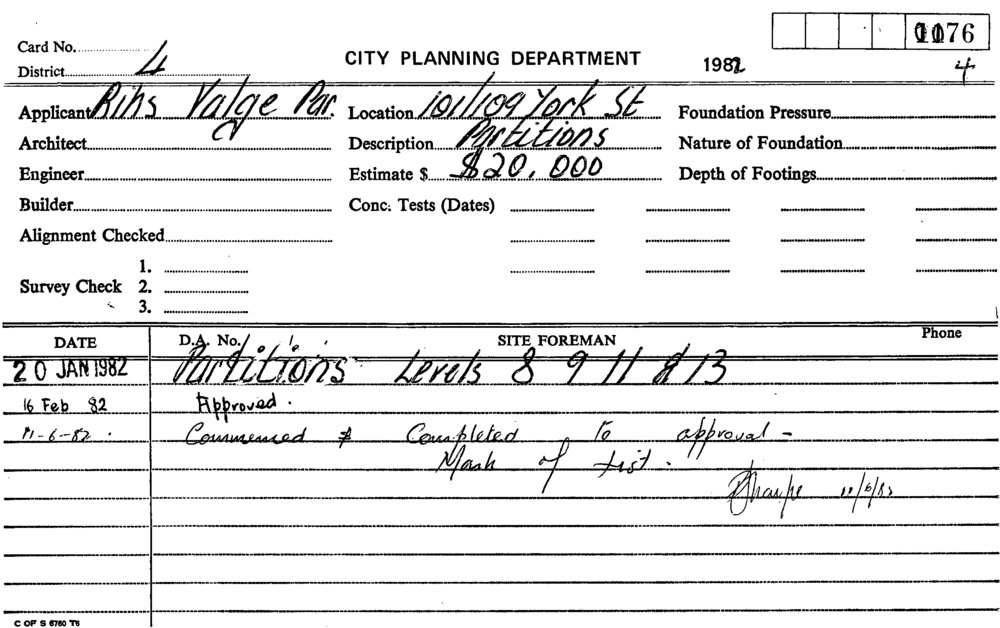 Card No.
District 4
CITY PLANNING DEPARTMENT
1982 4
Applicant Rihs Valge Par. Location 101/109 York St Foundation Pressure
Architect Description Partitions Nature of Foundation
Engineer Estimate $ $20,000 Depth of Footings
Builder Conc. Tests (Dates)
Alignment Checked
1.
Survey Check 2.
3.
DATE D.A. No. SITE FOREMAN Phone
20 JAN 1982 Partitions Levels 8 9 11 & 13
16 Feb 82 Approved.
11-6-82. Commenced & Completed to approval -
of list.
11/6/82
C OF S 6760 T6